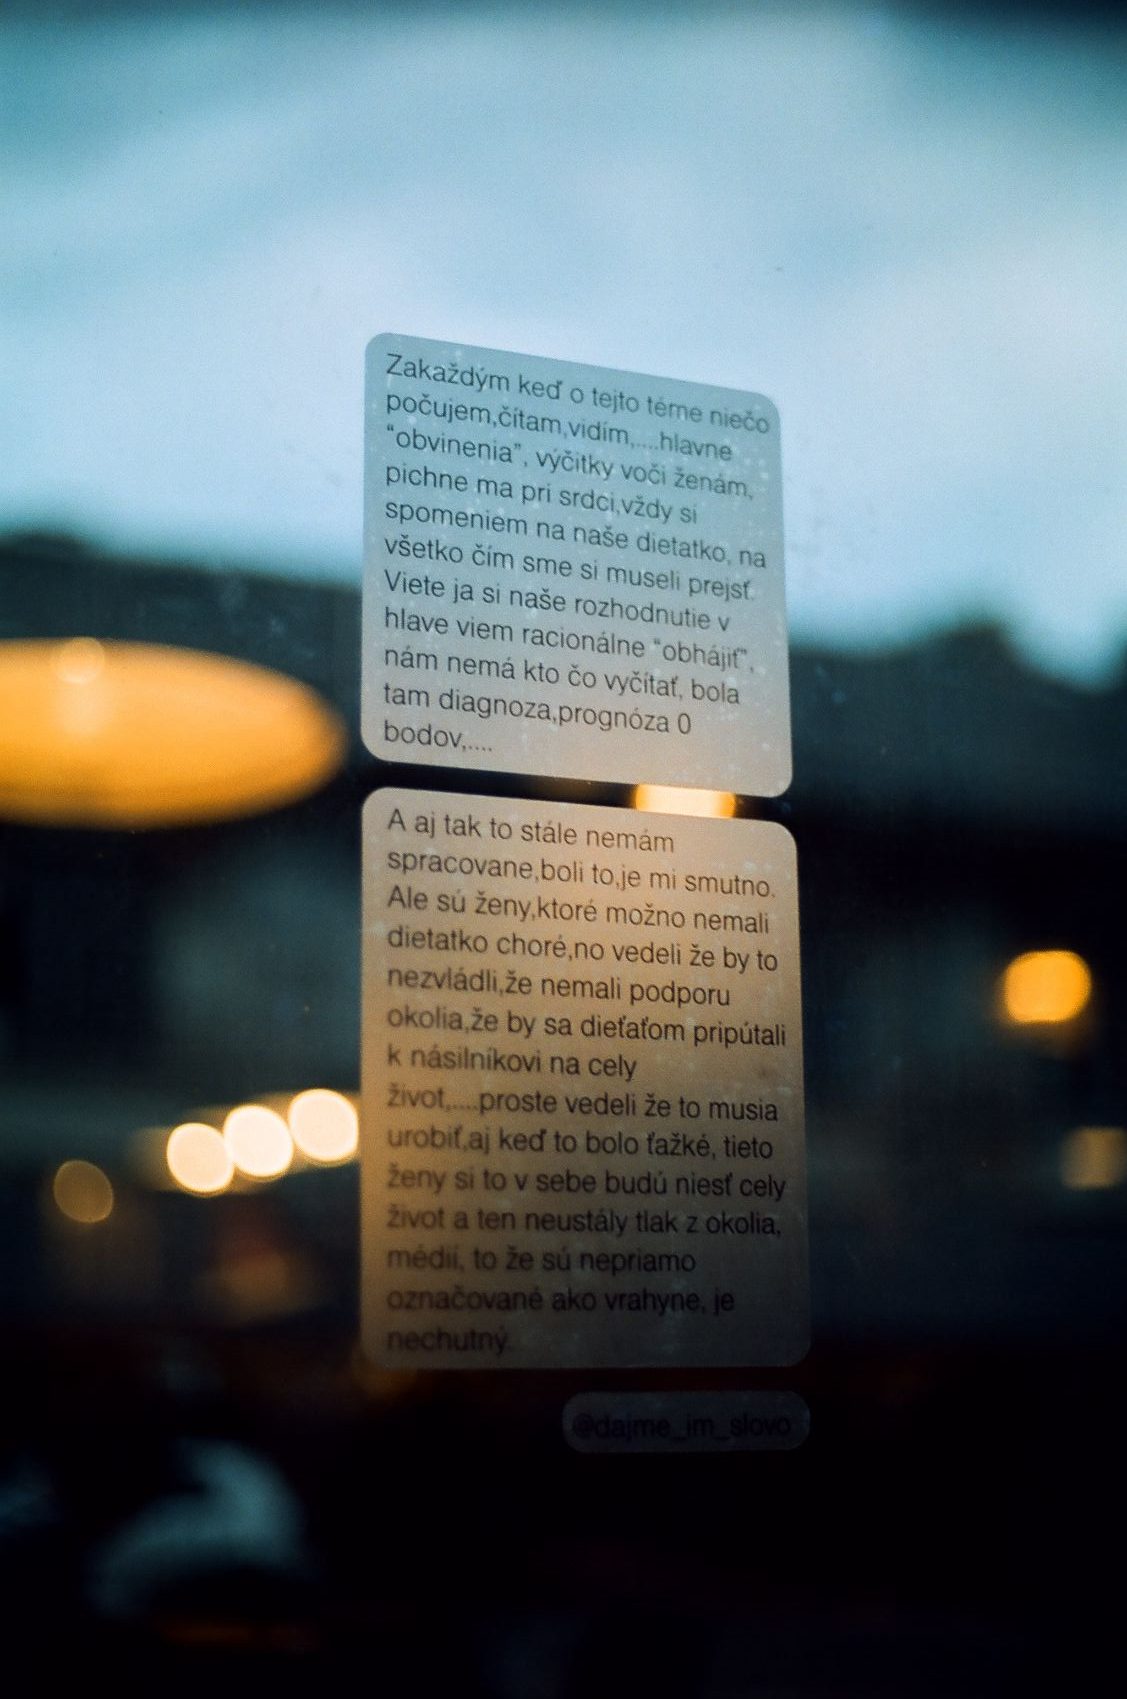 Zakaždým keď o tejto téme niečo
počujem,čítam,vidím,....hlavne
“obvinenia”, výčitky voči ženám,
pichne ma pri srdci,vždy si
spomeniem na naše dietatko, na
všetko čím sme si museli prejsť.
Viete ja si naše rozhodnutie v
hlave viem racionálne “obhájiť”,
nám nemá kto čo vyčítať, bola
tam diagnoza,prognóza 0
bodov,....
A aj tak to stále nemám
spracovane,boli to,je mi smutno.
Ale sú ženy,ktoré možno nemali
dietatko choré,no vedeli že by to
nezvládli,že nemali podporu
okolia,že by sa dieťaťom pripútali
k násilníkovi na cely
život,....proste vedeli že to musia
urobiť,aj keď to bolo ťažké, tieto
ženy si to v sebe budú niesť cely
život a ten neustály tlak z okolia,
médií, to že sú nepriamo
označované ako vrahyne, je
nechutný.
@dajme_im_slovo